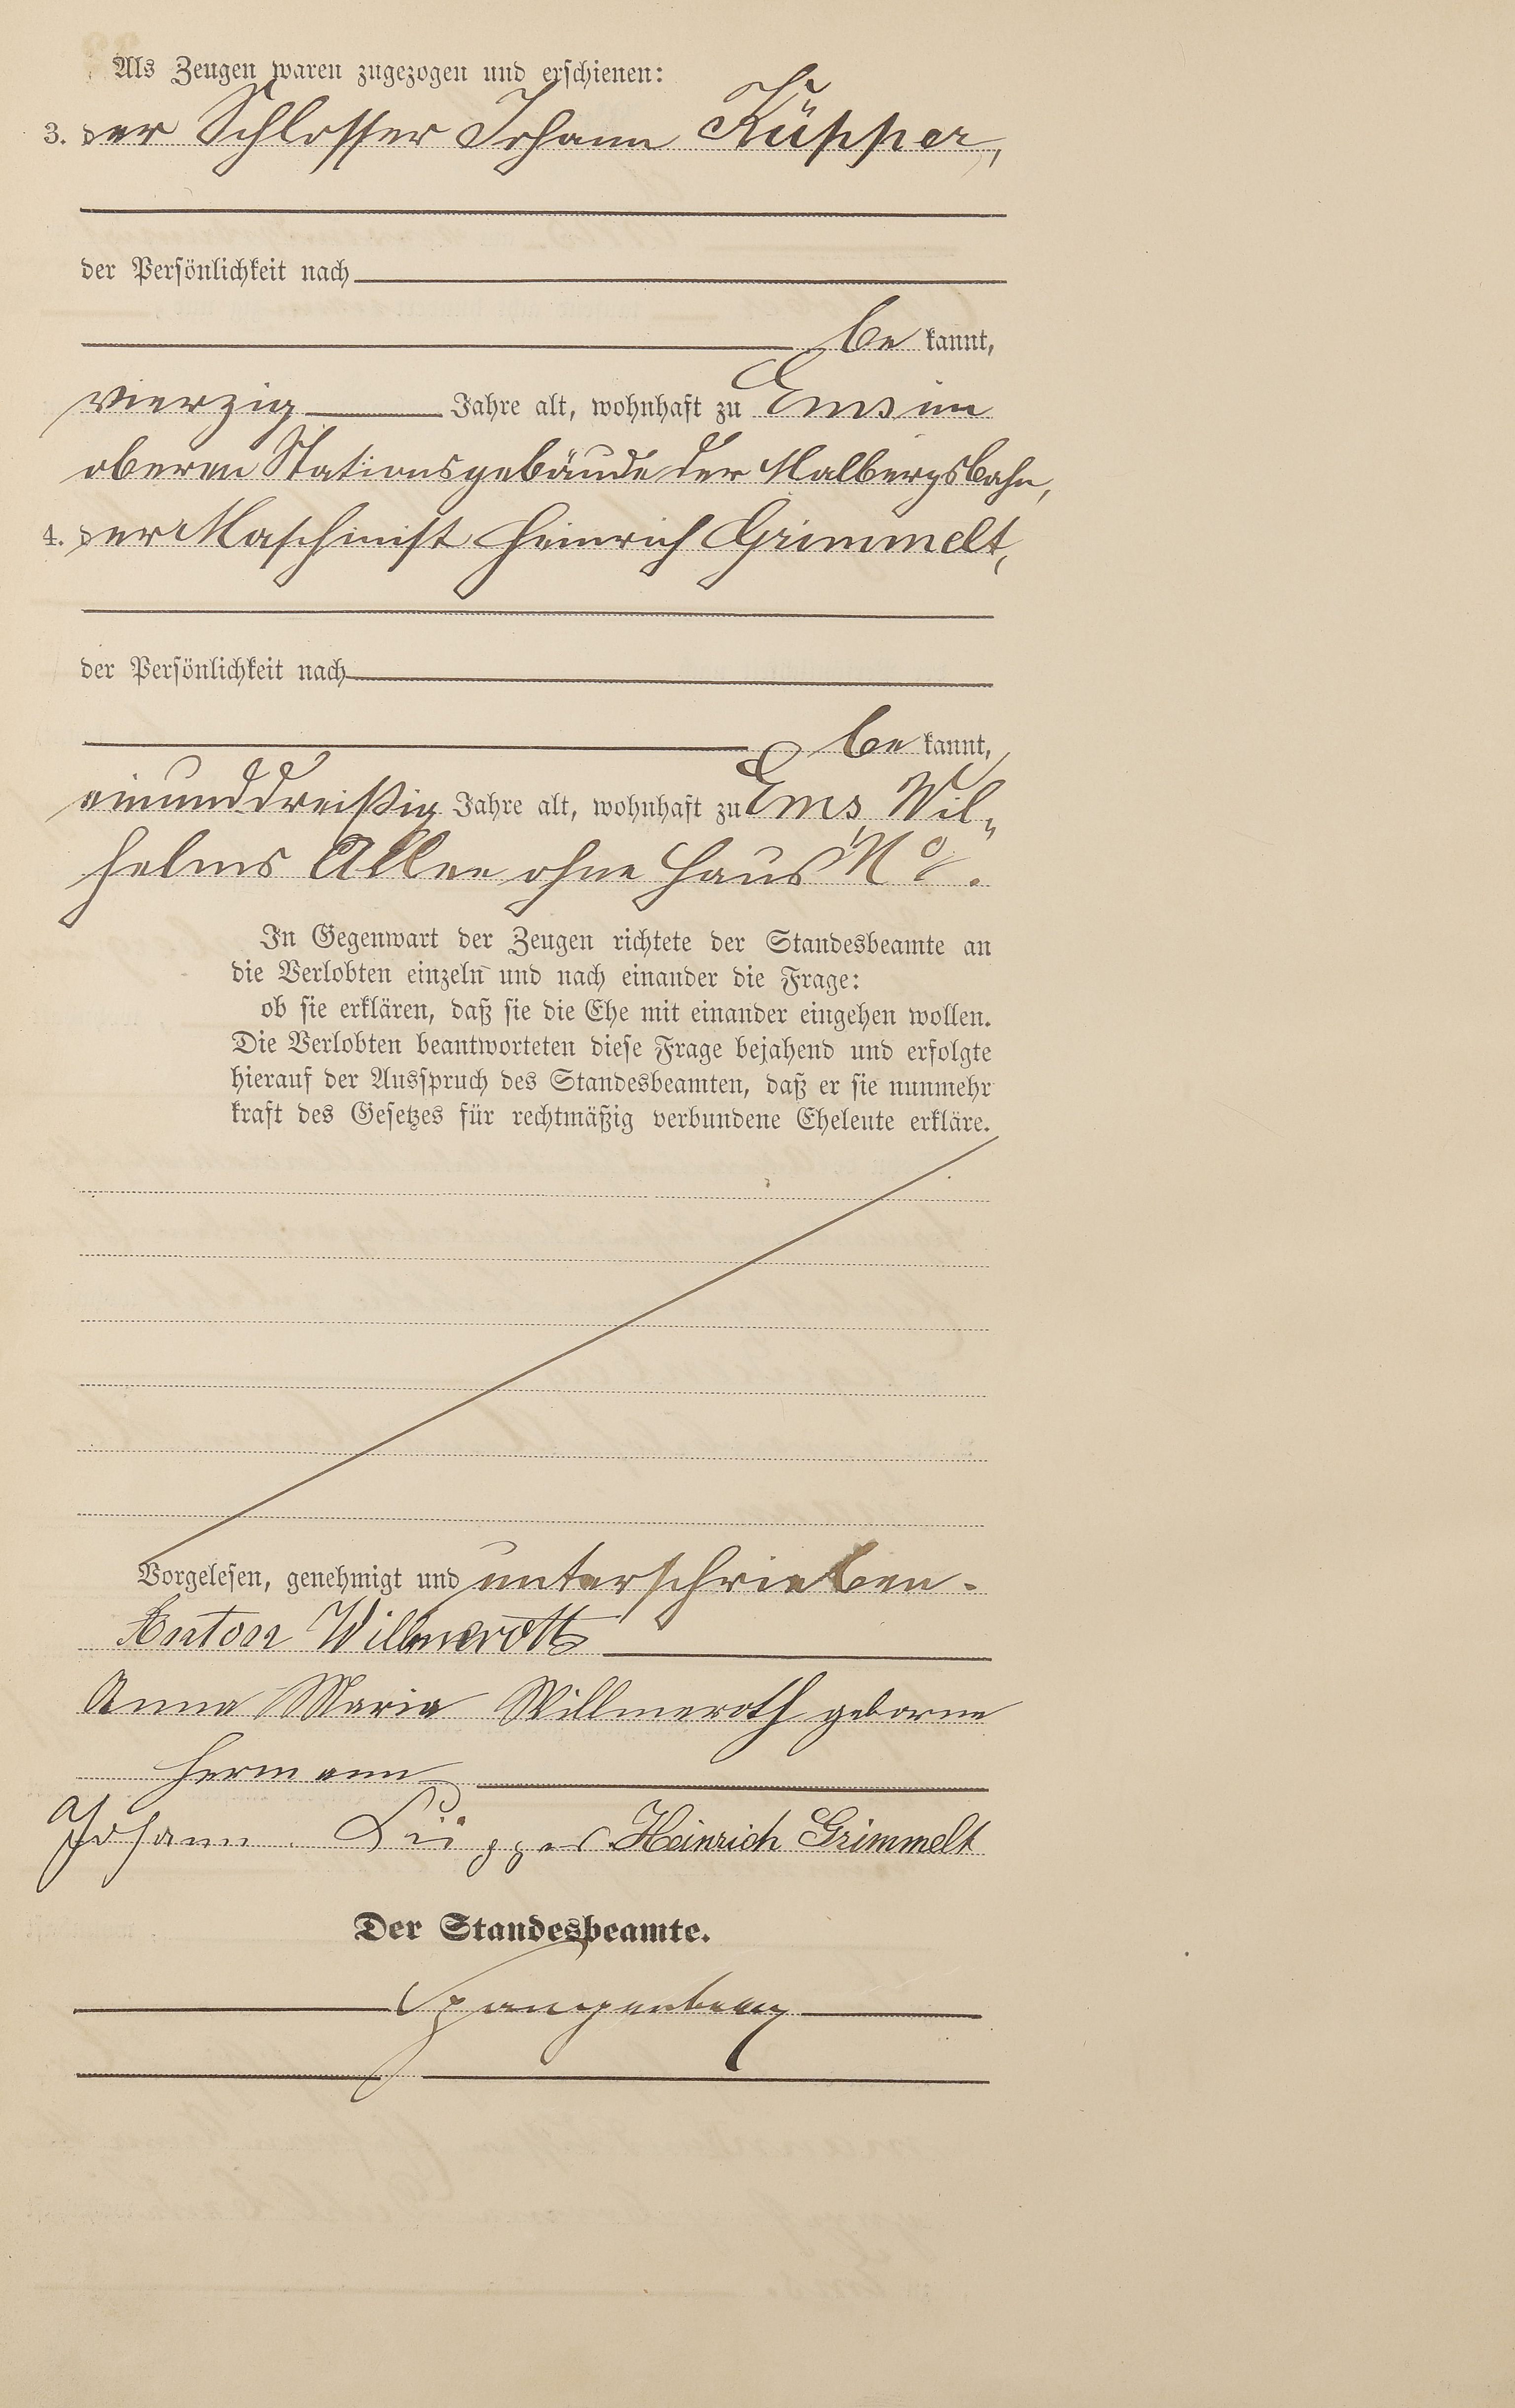 Als Zeugen waren zugezogen und erschienen:
3. der Schlosser Johann Küpper,
der Persönlichkeit nach
be kannt,
vierzig Jahre alt, wohnhaft zu Ems im
oberen Stationsgebäude der Malbergsbahn,
4. der Maschinist Heinrich Grimmelt,
der Persönlichkeit nach
be kannt,
einunddreißig Jahre alt, wohnhaft zu Ems Wil„
helms Allee ohne Haus No.
In Gegenwart der Zeugen richtete der Standesbeamte an
die Verlobten einzeln und nach einander die Frage:
ob sie erklären, daß sie die Ehe mit einander eingehen wollen.
Die Verlobten beantworteten diese Frage bejahend und erfolgte
hierauf der Ausspruch des Standesbeamten, daß er sie nunmehr
kraft des Gesetzes für rechtmäßig verbundene Eheleute erkläre.
Vorgelesen, genehmigt und unterschrieben.
Anton Willmeroth
Anna Maria Willmeroth geborne
Hermann
Johann Küpper Heinrich Grimmelt
Der Standesbeamte.
Spangenberg